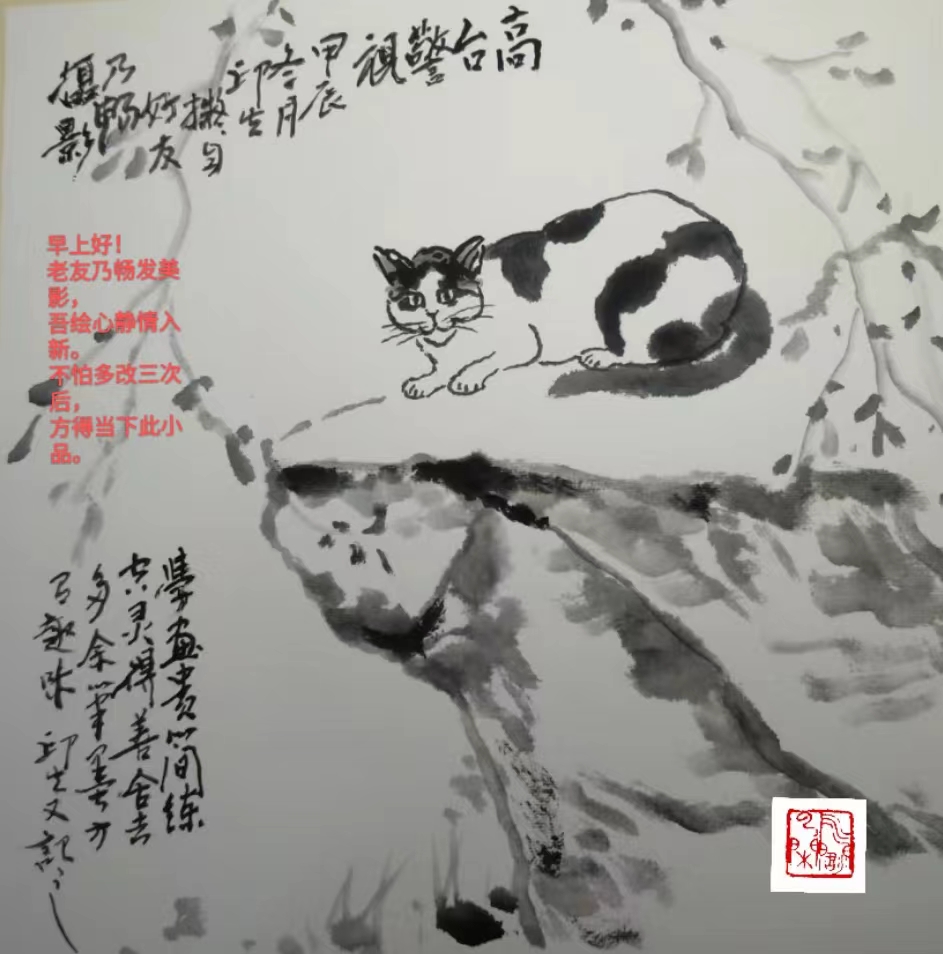 高台警视
甲辰
冬月
邱生
拟自
好友
乃畅
摄影
早上好!
老友乃畅发美
影,
吾绘心静情入
新。
不怕多改三次
后,
方得当下此小
品。
学画贵简练
空灵得善舍去
多余笔墨方
有趣味 邱生又记